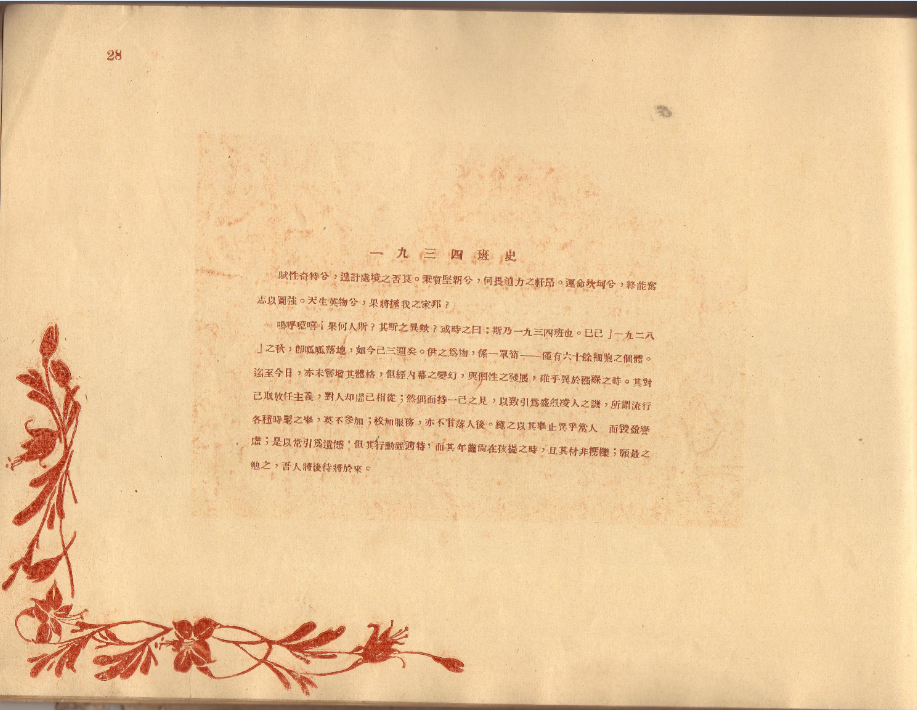 28
一九三四班史
賦性奇特兮，遑計處境之否良。秉質堅新兮，何畏迫力之軒昂。運命坎坷兮，終能奮
志以圖強。天生英物兮，果將拯我之家邦？
嗚呼噫嘻；果何人斯？其斯之異歟？或時之曰；斯乃一九三四班也。己巳「一九二八
」之秋，即呱呱落地，如今已三週矣。伊之爲物，係一單笛——僅有六十餘細胞之個體。
迄至今日，亦未暫增其體格，但經內幕之變幻，與個性之發展，維乎異於襁褓之時。其對
己取放任主義，對人却虛己相從；然仰而持一己之見，以致引爲盛氣凌人之譏，所謂流行
各種時髦之舉，莫不參加；校如服務，亦不甘落人後。總之以其舉止咒乎常人 而毀盈譽
虛；是以常引爲遺憾！但其行動雖薄特，而其年齡尚在孩提之時，且其材非樗櫟；願最之
勉之，吾人將後待將於來。